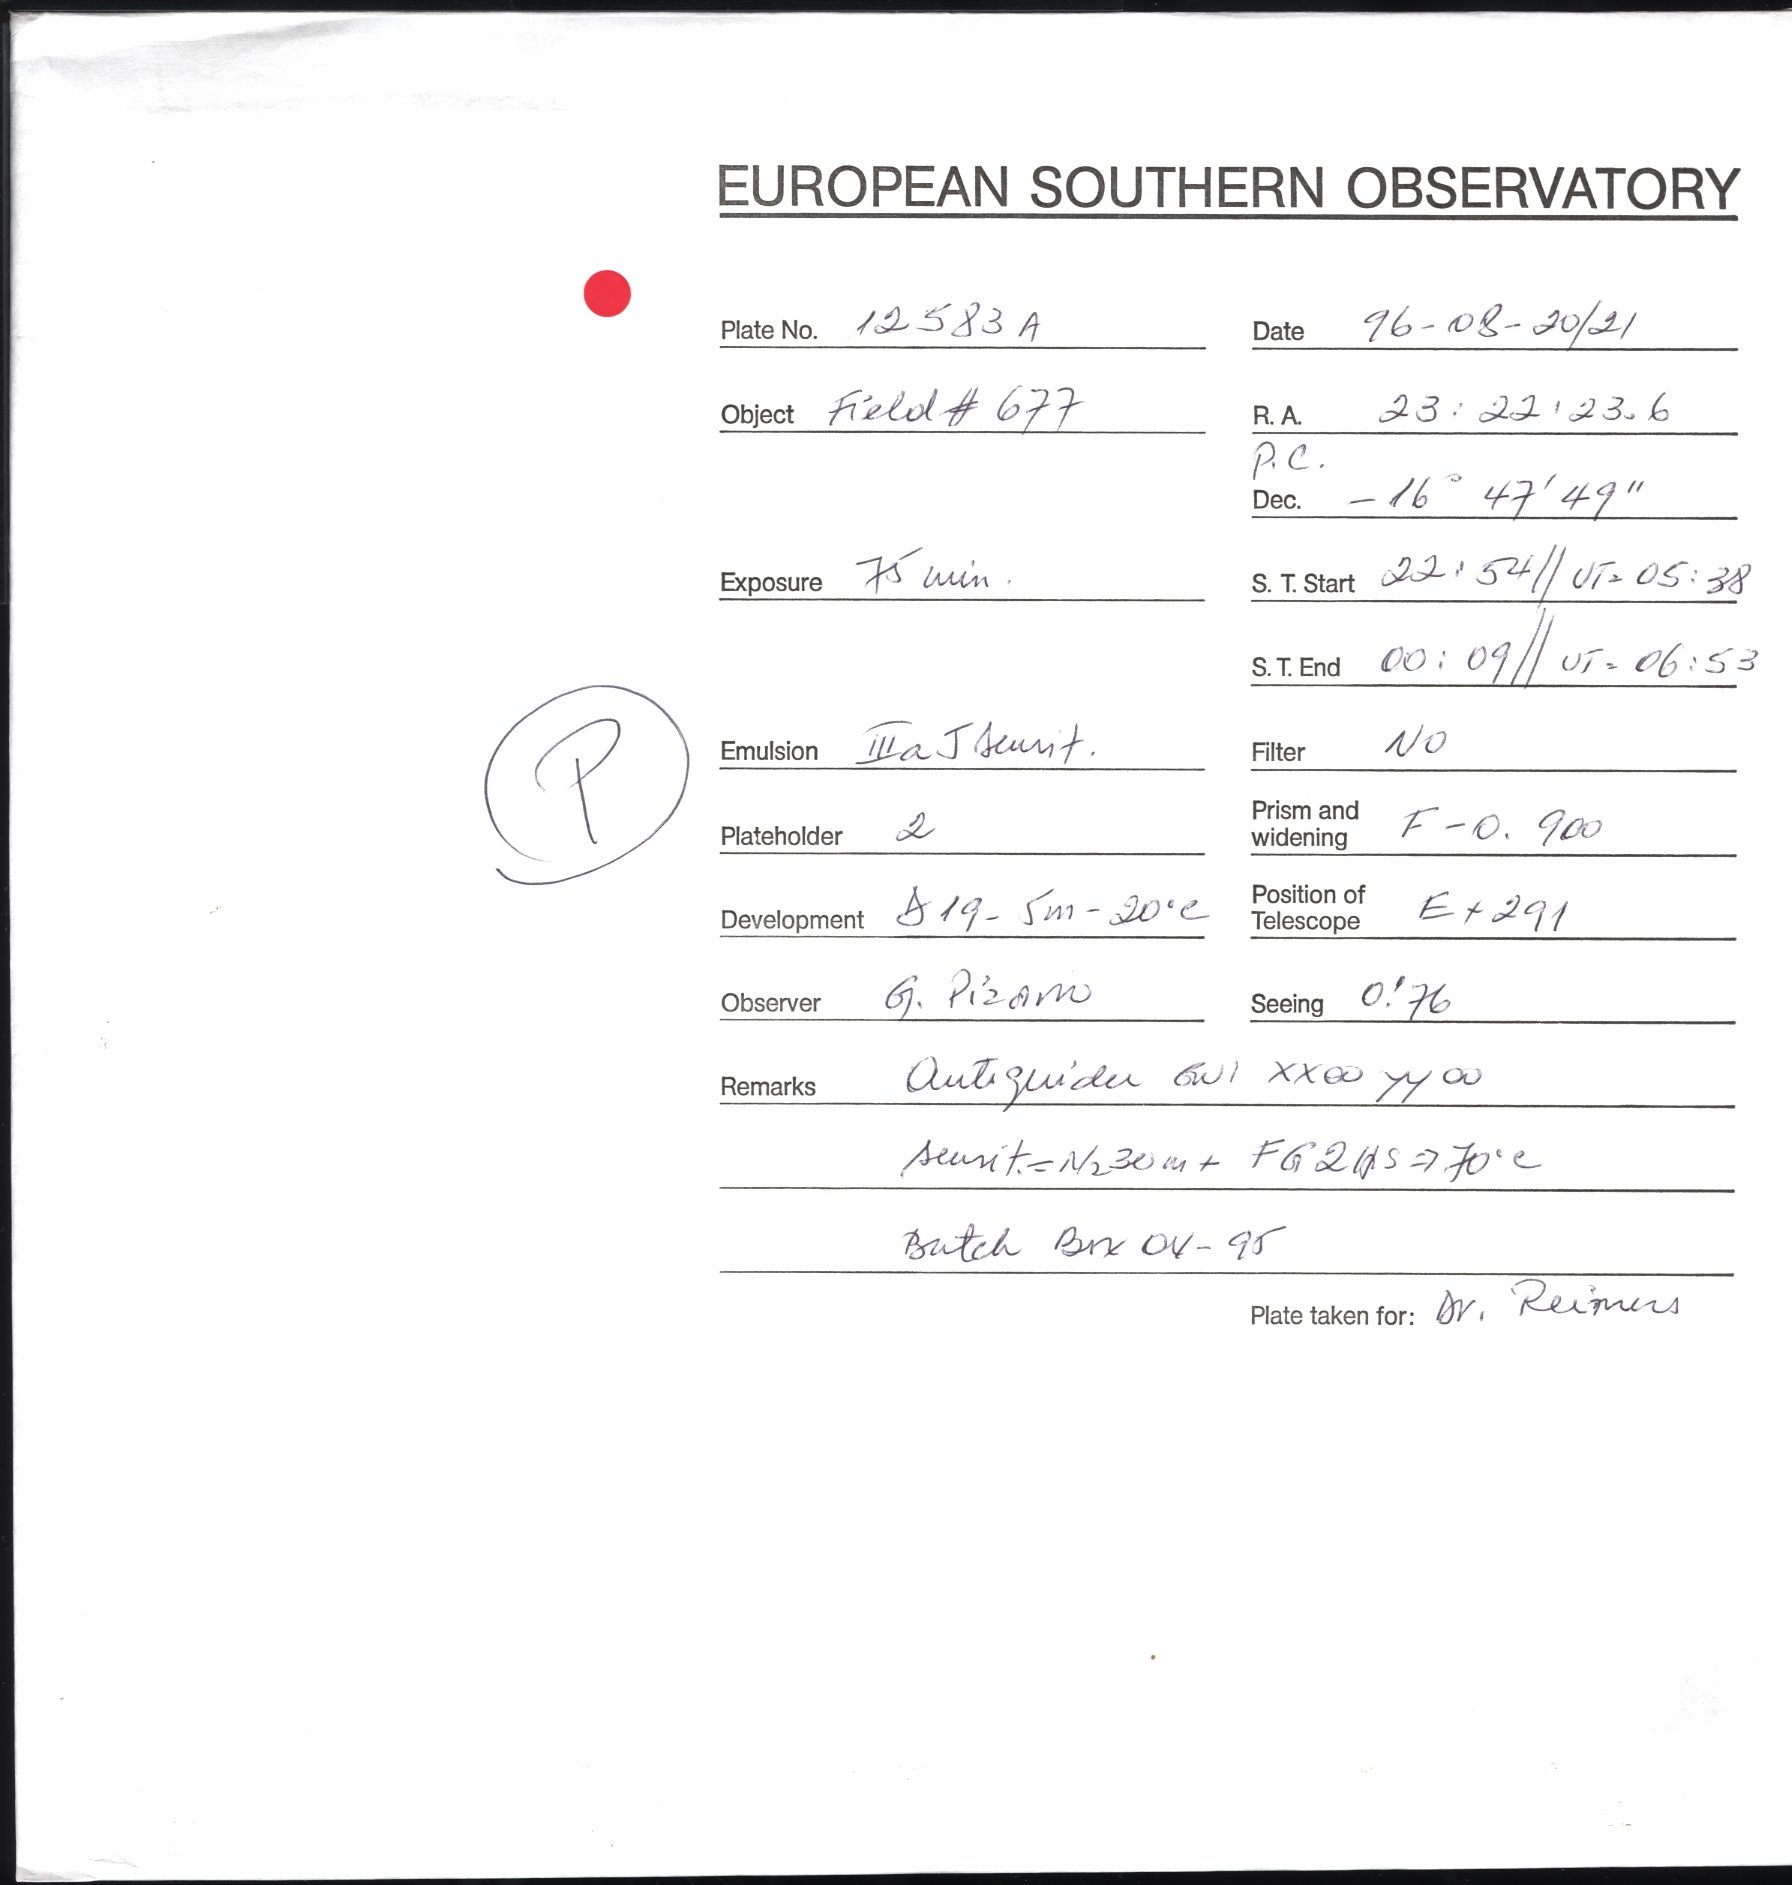 EUROPEAN SOUTHERN OBSERVATORY
Plate No. 12583 A
Date 96-08-20/21
Object Field # 677
R. A. 23:22:23.6
P.C.
Dec. -16° 47' 49"
Exposure 75 min.
S. T. Start 22:54// UT= 05:38
S. T. End 00:09// UT= 06:53
P
Emulsion IIIa J sensit.
Filter NO
Plateholder 2
Prism and widening F-0.900
Development D19- 5m-20°c
Position of Telescope E+291
Observer G. Pizarro
Seeing 0."76
Remarks Autoguider XX00 yy00
sensit.=N₂30m+ FG2HS=>70°c
Batch Box 04-95
Plate taken for: Dr. Reimers